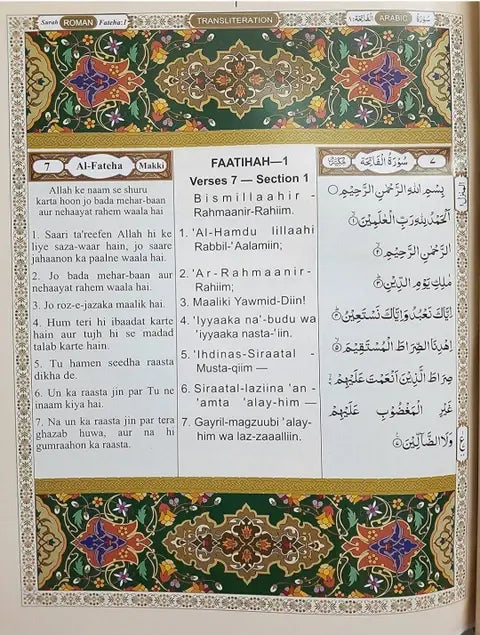 Surah ROMAN Fateha:1
TRANSLITERATION
الفاتحة:١ ARABIC سورة
7 Al-Fateha Makki
Allah ke naam se shuru
karta hoon jo bada mehar-baan
aur nehaayat rahem waala hai
1. Saari ta'reefen Allah hi ke
liye saza-waar hain, jo saare
jahaanon ka paalne waala hai.
2. Jo bada mehar-baan aur
nehaayat rahem waala hai.
3. Jo roz-e-jazaka maalik hai.
4. Hum teri hi ibaadat karte
hain aur tujh hi se madad
talab karte hain.
5. Tu hamen seedha raasta
dikha de.
6. Un ka raasta jin par Tu ne
inaam kiya hai.
7. Na un ka raasta jin par tera
ghazab huwa, aur na hi
gumraahon ka raasta.
FAATIHAH—1
Verses 7 — Section 1
Bismillaahir -
Rahmaanir-Rahiim.
1. 'Al-Hamdu lillaahi
Rabbil-'Aalamiin;
2. 'Ar-Rahmaanir-
Rahiim;
3. Maaliki Yawmid-Diin!
4. 'Iyyaaka na'-budu wa
'iyyaaka nasta-'iin.
5. 'Ihdinas-Siraatal -
Musta-qiim —
6. Siraatal-laziina 'an -
'amta 'alay-him —
7. Gayril-magzuubi 'alay-
him wa laz-zaaalliin.
سُوْرَةُ الْفَاتِحَةِ ٧
بِسْمِ اللهِ الرَّحْمٰنِ الرَّحِيْمِ
اَلْحَمْدُ لِلّٰهِ رَبِّ الْعٰلَمِيْنَ ١
الرَّحْمٰنِ الرَّحِيْمِ ٢
مٰلِكِ يَوْمِ الدِّيْنِ ٣
اِيَّاكَ نَعْبُدُ وَاِيَّاكَ نَسْتَعِيْنُ ٤
اِهْدِنَا الصِّرَاطَ الْمُسْتَقِيْمَ ٥
صِرَاطَ الَّذِيْنَ اَنْعَمْتَ عَلَيْهِمْ ٦
غَيْرِ الْمَغْضُوْبِ عَلَيْهِمْ
وَلَا الضَّآلِّيْنَ ٧
ع